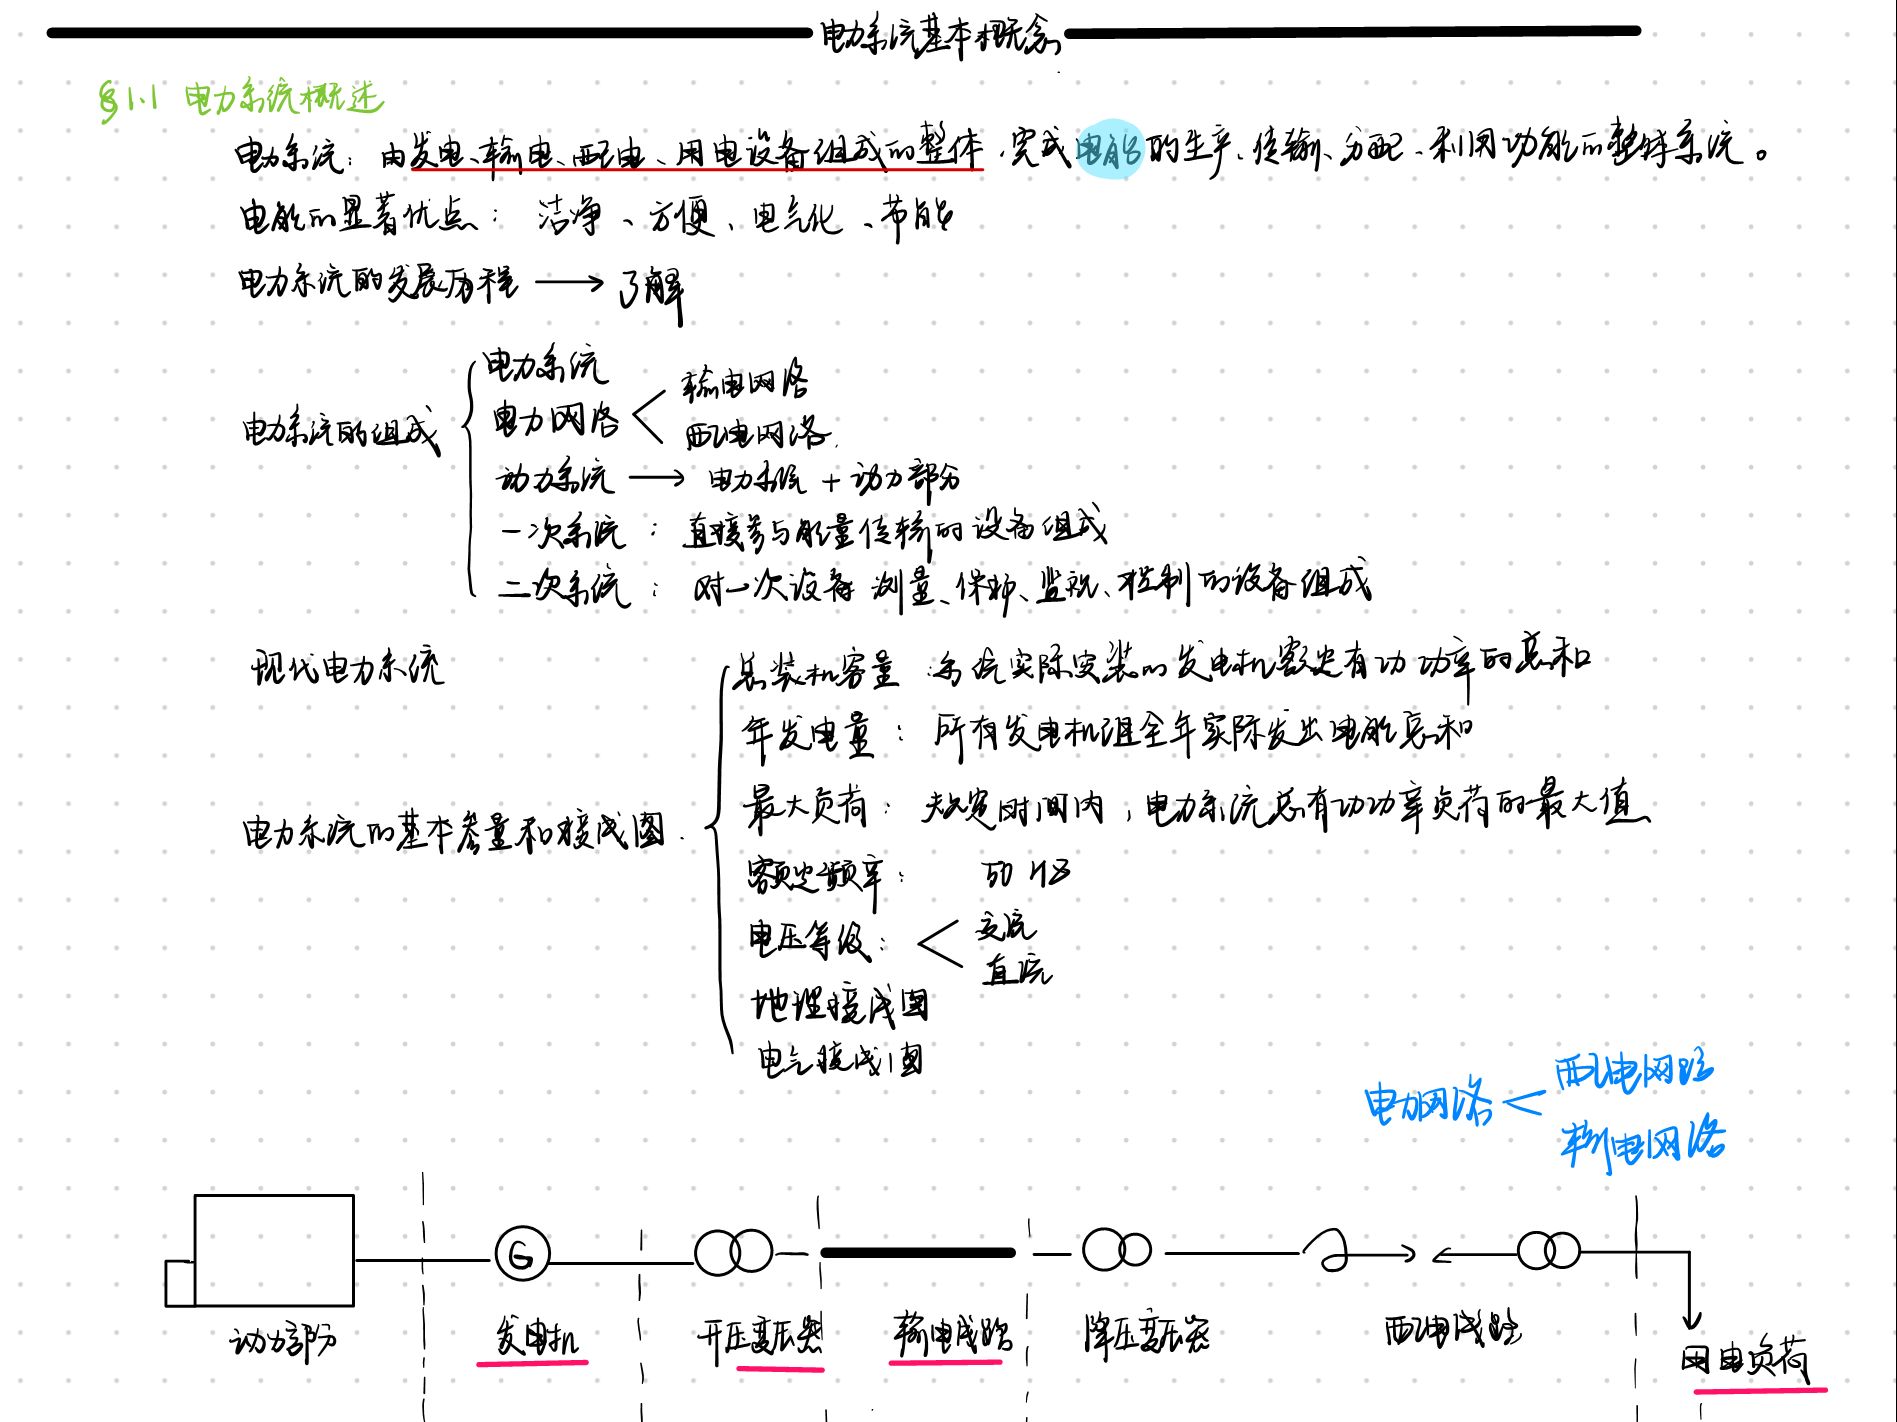 电力系统基本概念
§1.1 电力系统概述
电力系统：由发电、输电、配电、用电设备组成的整体，完成电能的生产、传输、分配、利用功能的整体系统。
电能的显著优点：洁净、方便、电气化、节能
电力系统的发展历程 → 了解
电力系统的组成
电力系统
电力网络 < 输电网络
配电网络
动力系统 → 电力系统 + 动力部分
一次系统：直接参与能量传输的设备组成
二次系统：对一次设备测量、保护、监视、控制的设备组成
现代电力系统
电力系统的基本参量和接线图
总装机容量：系统实际安装的发电机额定有功功率的总和
年发电量：所有发电机组全年实际发出电能总和
最大负荷：规定时间内，电力系统总有功功率负荷的最大值
额定频率：50 HZ
电压等级：< 交流
直流
地理接线图
电气接线图
电力网络 < 配电网络
输电网络
G
动力部分 发电机 升压变压器 输电线路 降压变压器 配电线路 用电负荷